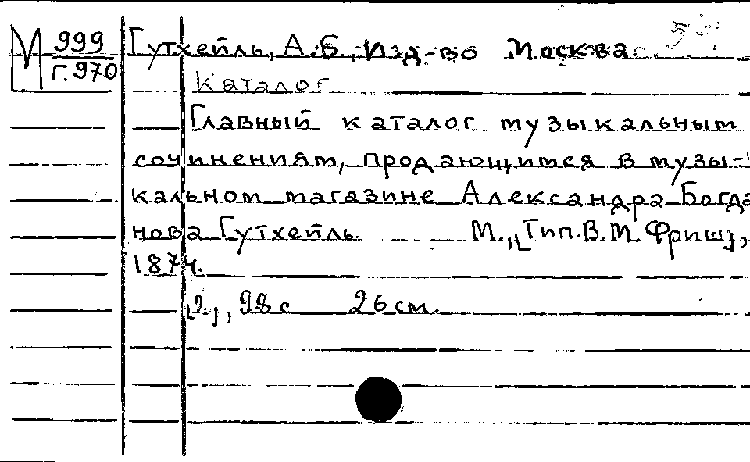 М 999
Г.970
Гутхейль, А.Б., Изд-во Москва
Каталог
Главный каталог музыкальным
сочинениям, продающимся в музы-
кальном магазине Александра Богда
нова Гутхейль. М., [Тип. В.М. Фриш],
1874.
[2], 98 с 26 см.